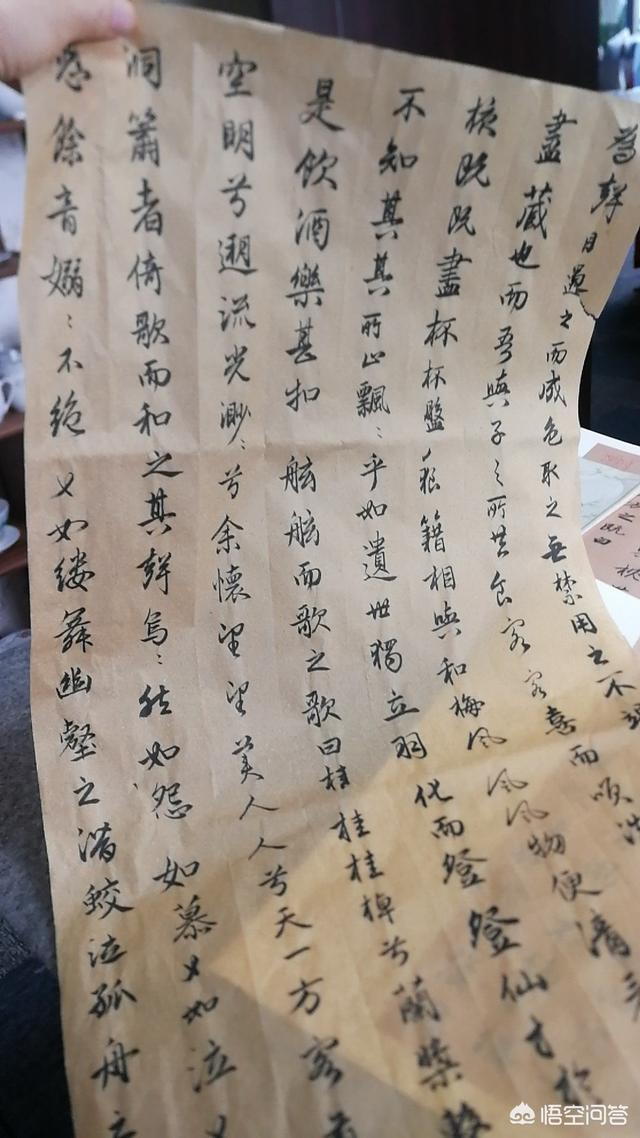 為聲目遇之而成色取之無禁用之不
盡藏也而吾與子之所共食客客喜而
核既既盡杯杯盤〃狼籍相與和梅風風風物便清
不知其其所止飄〻乎如遺世獨立羽化而登登仙於
是飲酒樂甚扣舷舷而歌之歌曰桂桂桂棹兮蘭槳
空明兮遡流光渺〻兮余懷望望美人人兮天一方客
洞簫者倚歌而和之其聲烏〻然如怨如慕又如泣
餘音嫋〻不絕又如縷舞幽壑之潛蛟泣孤舟之
悟空问答